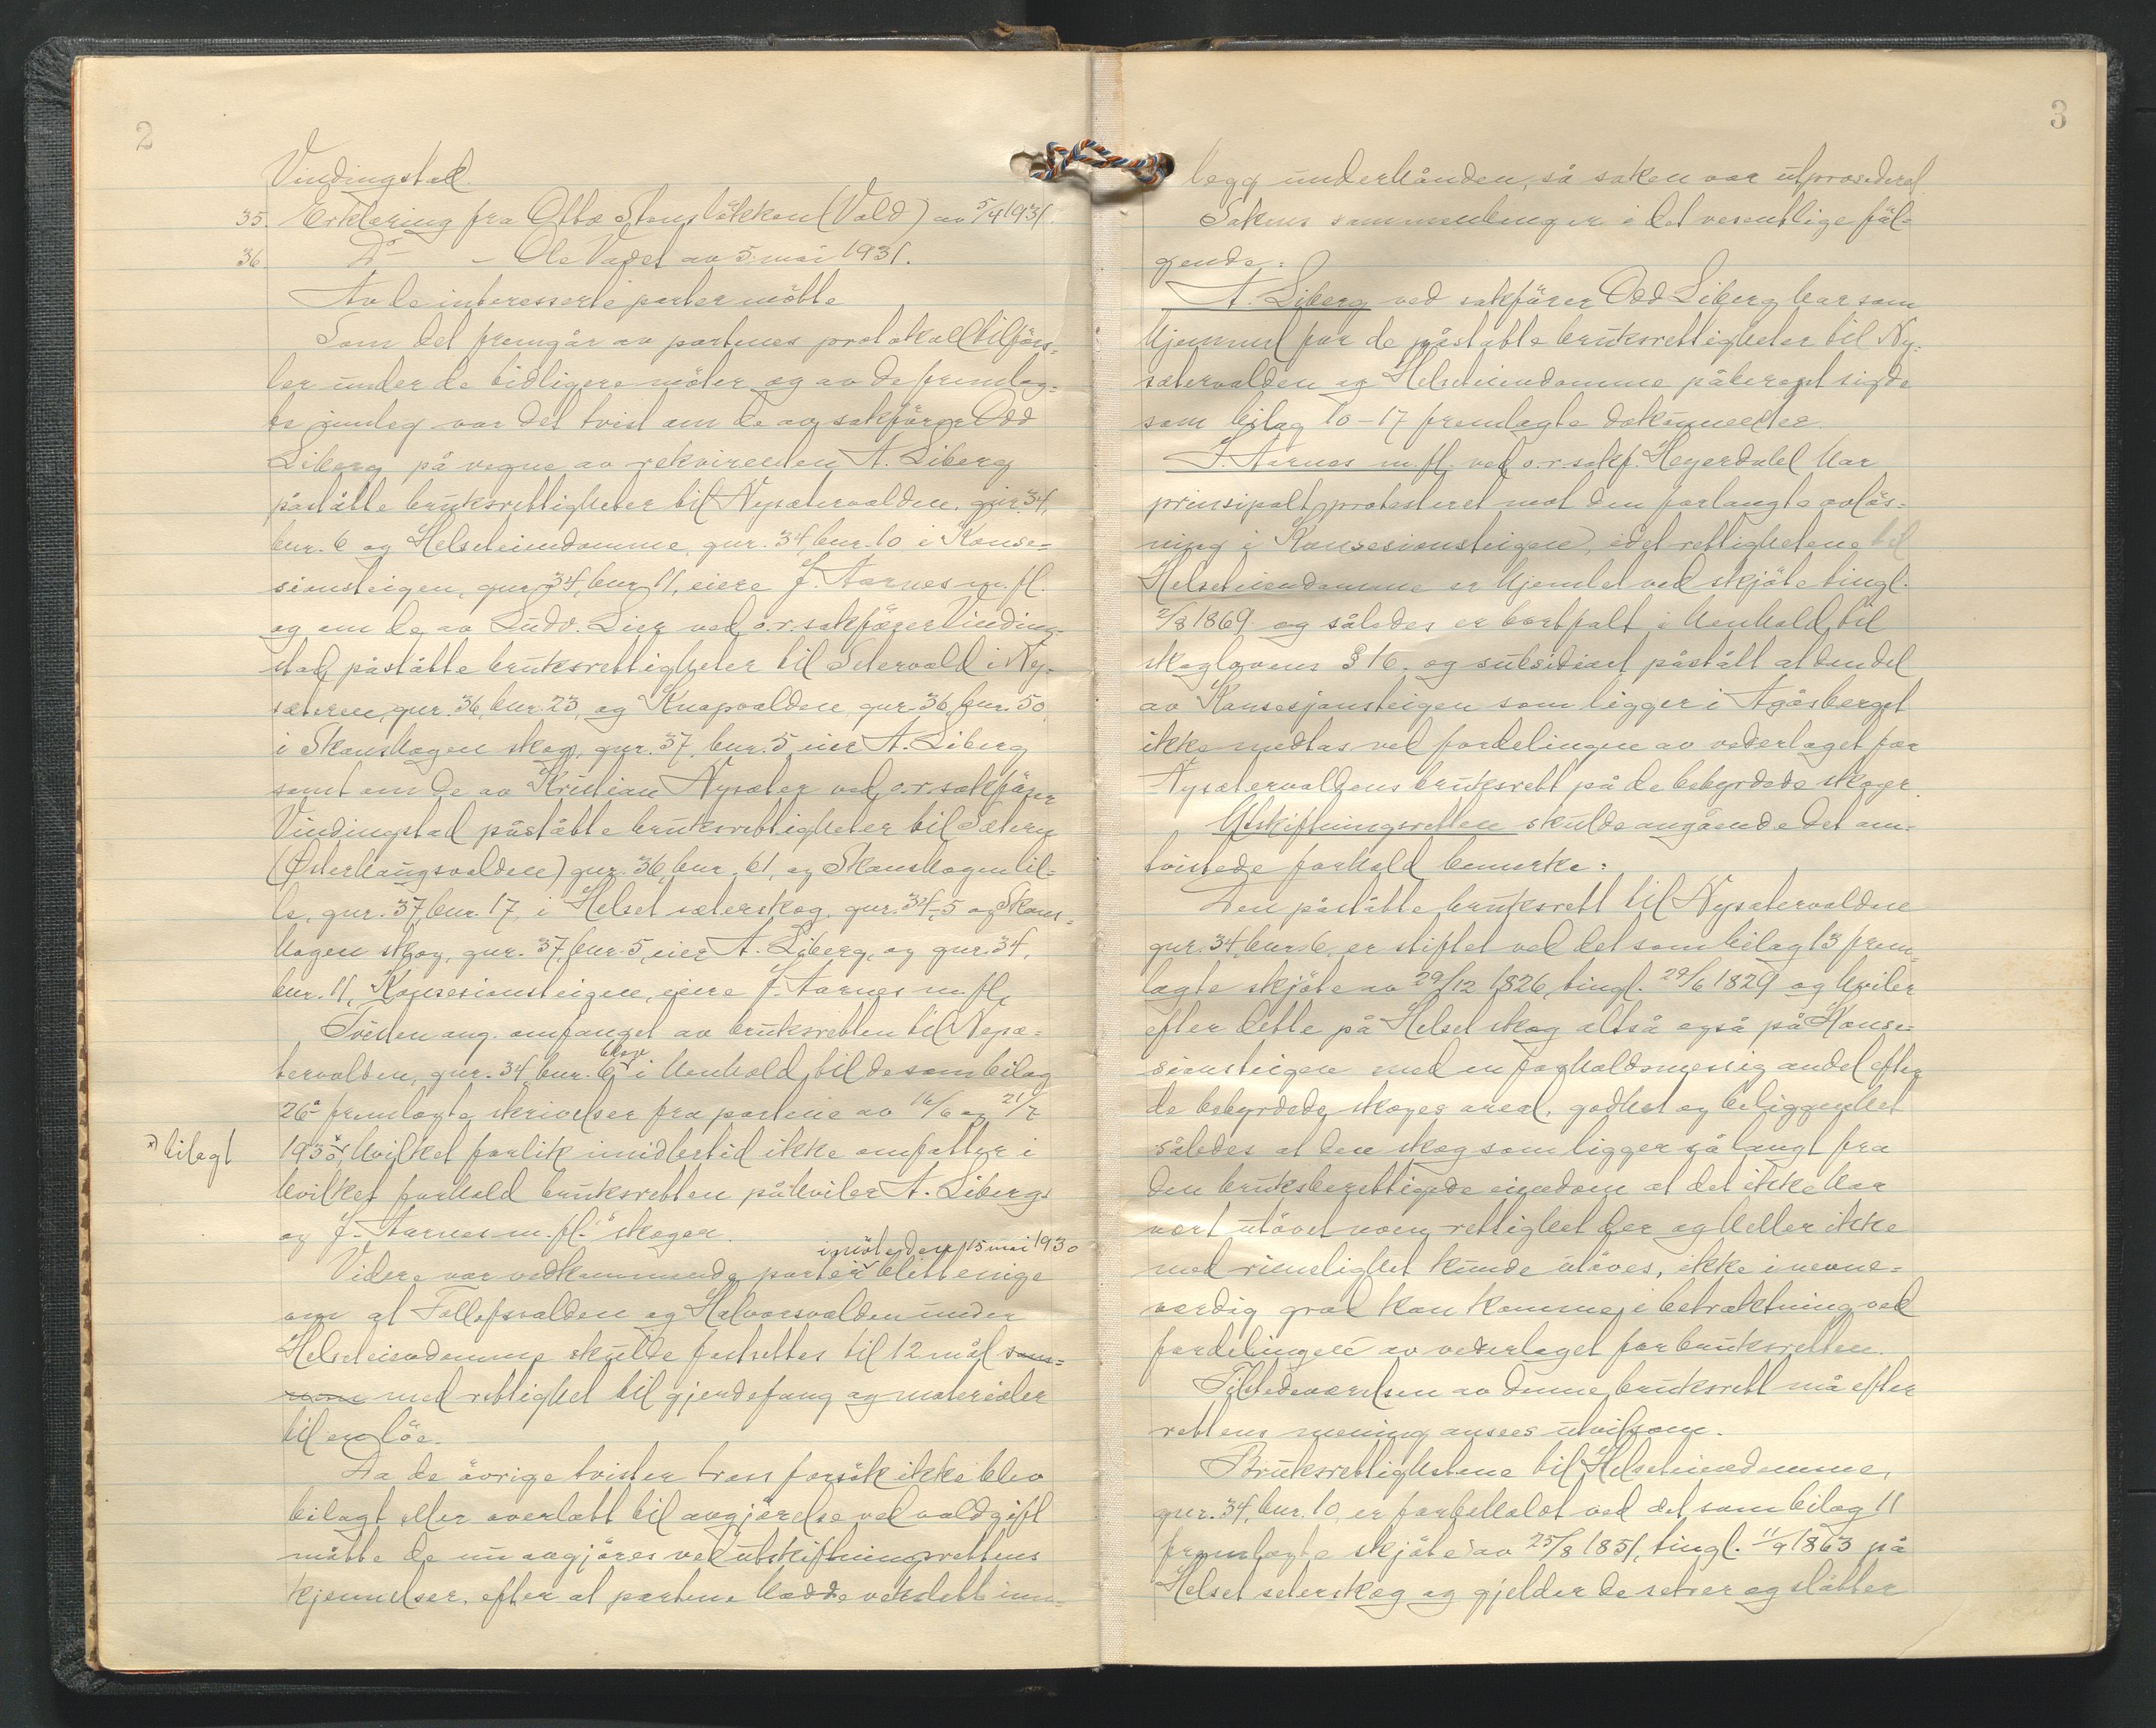 2
Vindingstad.
35. Erklæring fra Otto (Vold) av 5/4 1931.
36 Do – Ole Vadet av 5. mai 1931.
Av de interesserte parter møtte
Som det fremgår av partenes protokolltilførs-
ler under de tidligere møter og av de fremlag-
te innleg var det tvist om de av sakfører Odd
Liberg på vegne av rekvirenten A. Liberg
påståtte bruksrettigheter til Nysætervolden, gnr. 34,
bnr. 6 og Helseteiendomme gnr. 34, bnr. 10 i Konse-
sionsteigen, gnr. 34, bnr. 11, eiere J. Aarnes m. fl.
og om de av Ludv. Lier ved o.r.sakfører Vinding-
stad påståtte bruksrettigheter til Setervold i Ny-
seteren, gnr. 36, bnr. 23, og Knapvolden, gnr. 36, bnr. 50,
i Skanshagen skog, gnr. 37, bnr. 5, eier A. Liberg
samt om de av Kristian Nysæter ved o.r. sakfører
Vindingstad påståtte bruksrettigheter til Sætern
(Østerhaugsvolden) gnr. 36, bnr. 61, og Skanshagen lil-
le, gnr. 37, bnr. 17, i Helset seterskog, gnr. 34, 5 og Skans-
hagen skog, gnr. 37, bnr. 5, eier A. Liberg, og gnr. 34,
bnr. 11, Konsesionsteigen, eiere J. Aarnes m. fl.
Tvisten ang. omfanget av bruksretten til Nysæ-
tervolden, gnr. 34, bnr. 6 blev i henhold til de som bilag
26a fremlagte skrivelser fra partene av 16/6 og 21/7
x) bilagt
1930 x, hvilket forlik imidlertid ikke omfatter i
hvilket forhold bruksretten påhviler A. Libergs
og J. Aarnes m. fl.'s skoger.
i møte den 15 mai 1930
Videre var vedkommende parter blitt enige
om at Tollefsvolden og Halvorsvolden under
Helseteiendomme skulde fastsettes til 12 mål som-
me med rettighet til gjerdefang og materialer
til en løe.
Da de øvrige tvister tross forsøk ikke blev
bilagt eller overlatt til avgjørelse ved voldgift
måtte de nu avgjøres ved utskiftningsrettens
kjennelser, efter at partene hadde vekslett inn-
3
legg underhånden, så saken var utprosederet.
Sakens sammenheng er i det vesentlige føl-
gende:
A. Liberg ved sakfører Odd Liberg har som
hjemmel for de påståtte bruksrettigheter til Ny-
sætervolden og Helseteiendomme påberopt sig de
som bilag 10–17 fremlagte dokumenter.
J. Aarnes m. fl. ved o.r. sakf. Heyerdahl har
prinsipalt protesteret mot den forlangte avløs-
ning i Konsesionsteigen, idet rettighetene til
Helseteiendomme er hjemlet ved skjøte tingl.
2/8 1869 og således er bortfalt i henhold til
skoglovens § 16. og subsidiært påstått at den del
av Konsesjonsteigen som ligger i Agåsberget
ikke medtas ved fordelingen av vederlaget for
Nysætervoldens bruksrett på de bebyrdede skoger.
Utskiftningsretten skulde angående det om-
tvistede forhold bemerke:
Den påståtte bruksrett til Nysætervolden
gnr. 34, bnr. 6, er stiftet ved det som bilag 13 frem-
lagte skjøte av 29/12 1826, tingl. 29/6 1829 og hviler
efter dette på Helset skog altså også på Konse-
sionsteigen med en forholdsmessig andel efter
de bebyrdede skoges areal, godhet og beliggenhet
således at den skog som ligger så langt fra
den bruksberettigede eiendom at det ikke har
vært utøvet noen rettighet der og heller ikke
med rimelighet kunde utøves, ikke i nevne-
verdig grad kan komme i betraktning ved
fordelingen av vederlaget for bruksretten.
Tilstedeværelsen av denne bruksrett må efter
rettens mening ansees utvilsom.
Bruksrettighetene til Helseteiendomme,
gnr. 34, bnr. 10, er forbeholdt ved det som bilag 11
fremlagte skjøte av 25/8 1851, tingl. 11/9 1863 på
Helset seterskog og gjelder de setrer og slåtter